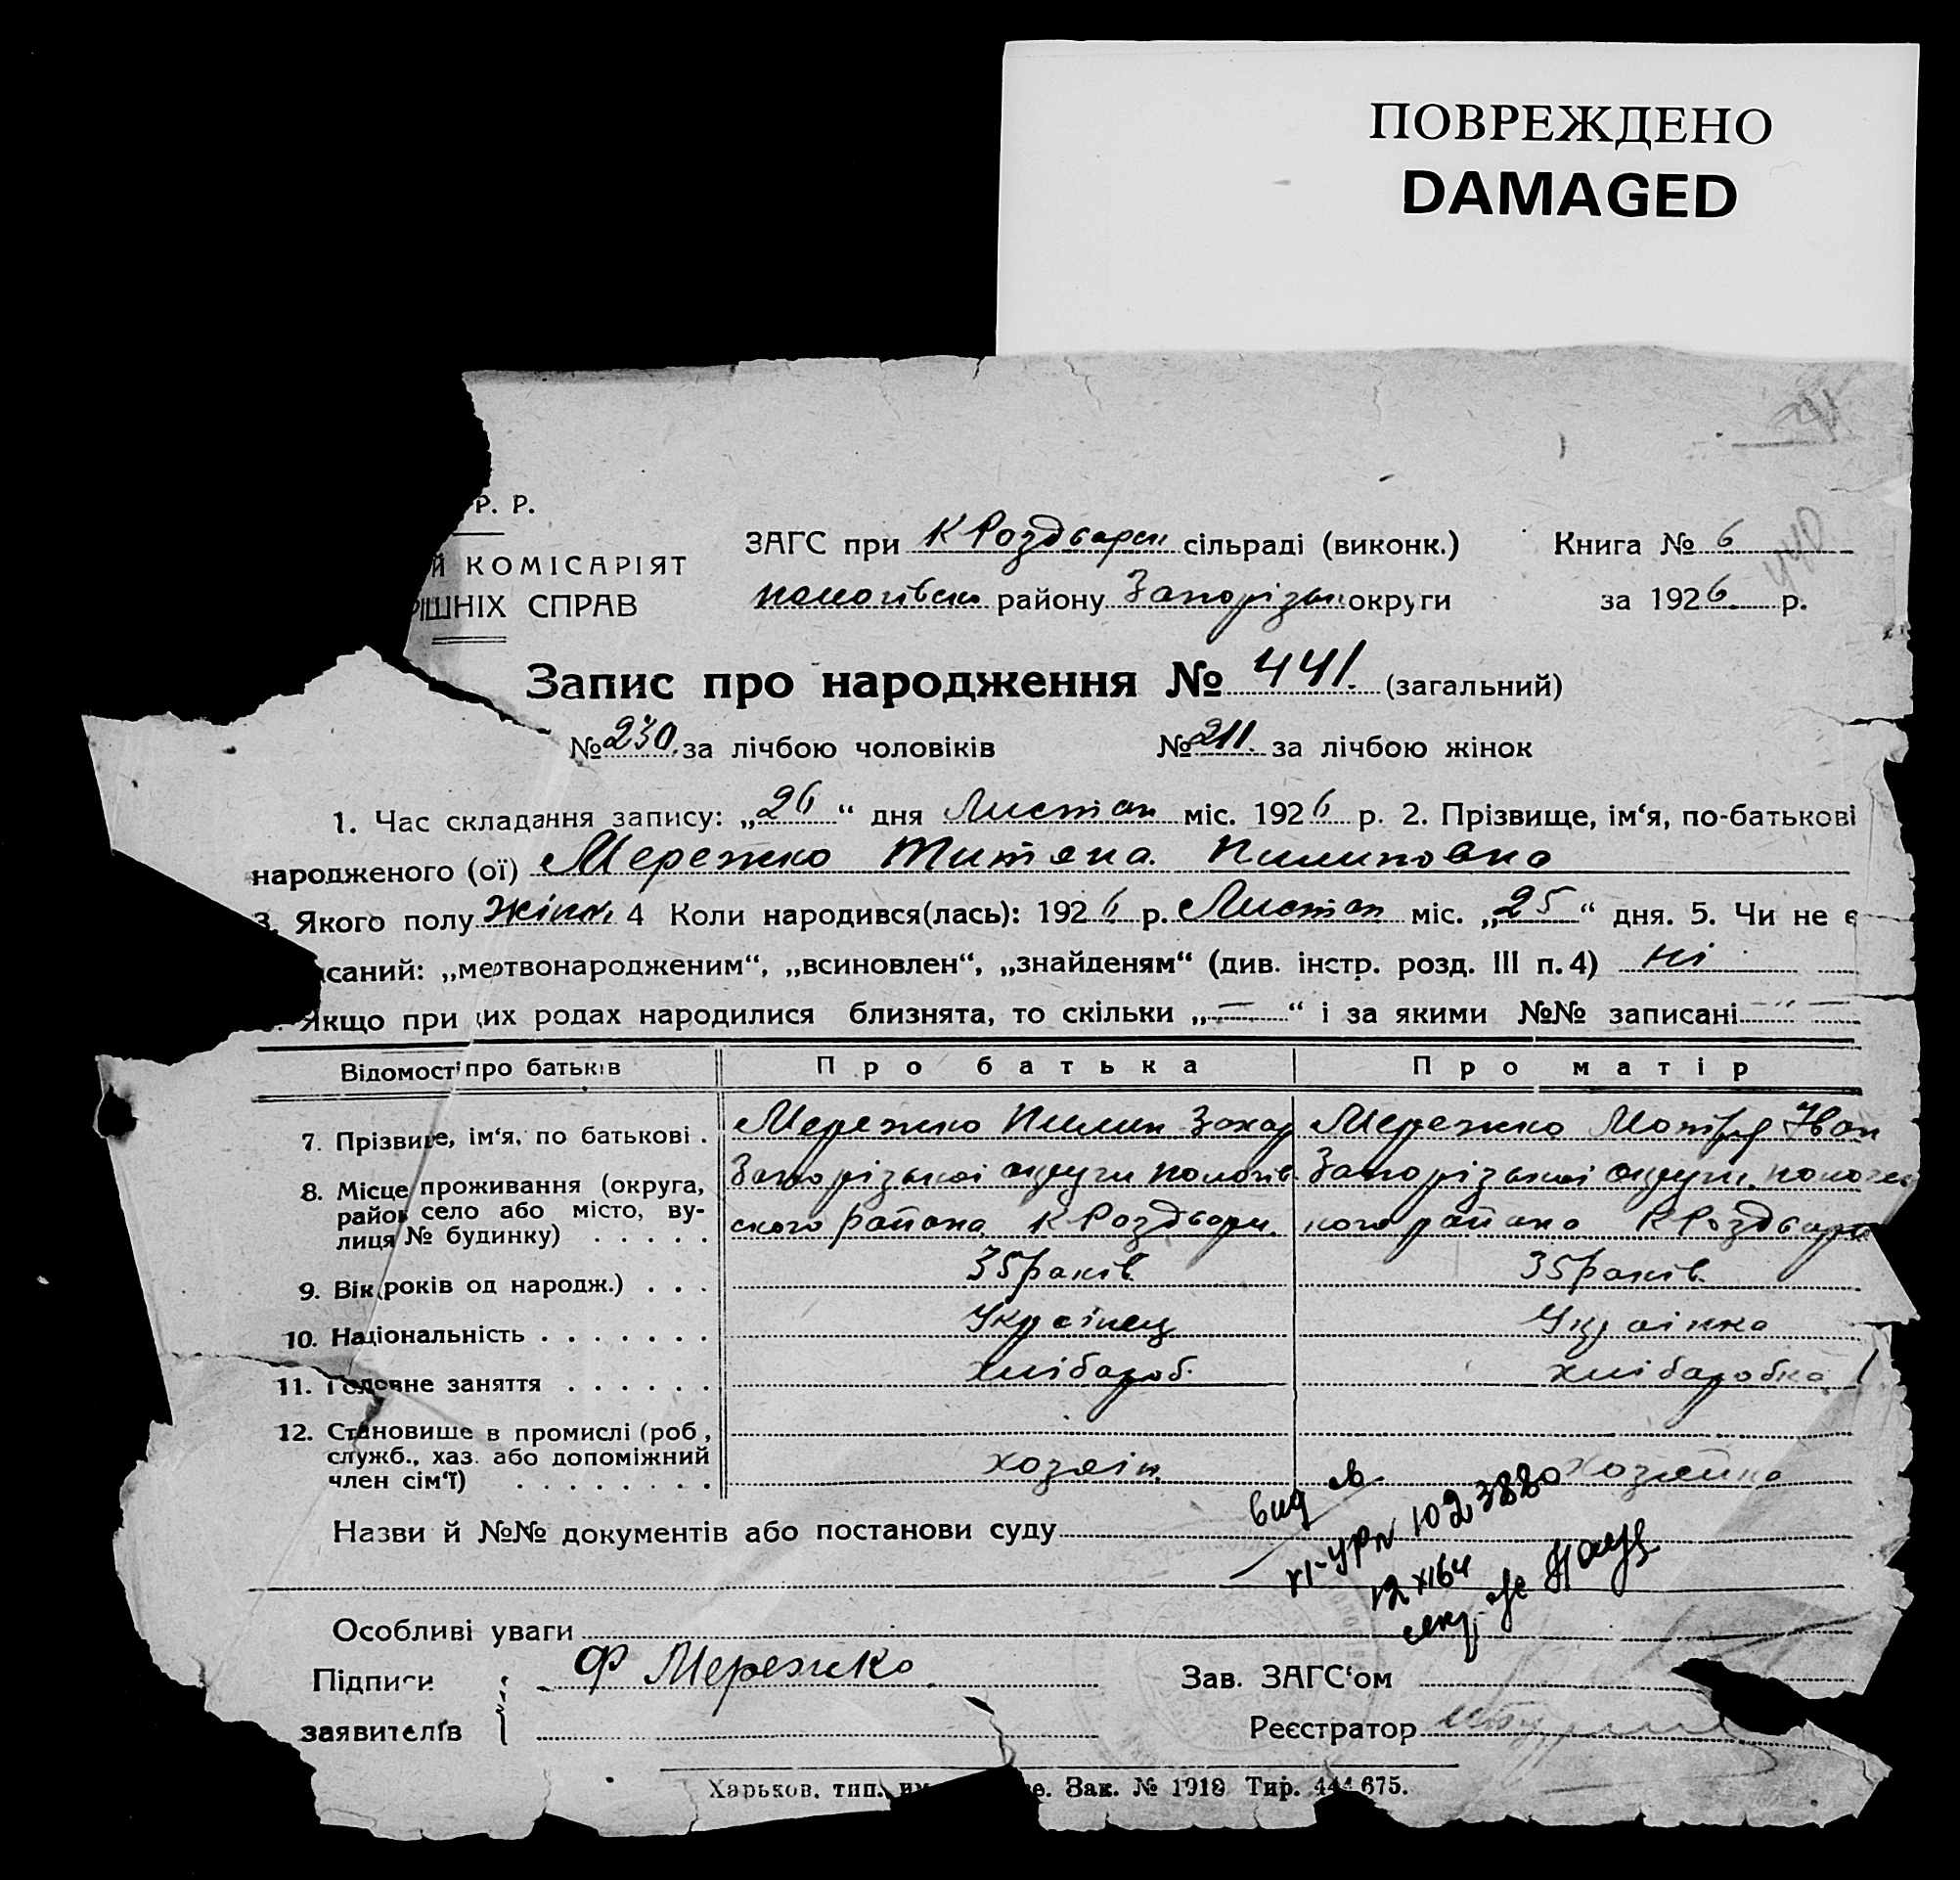 ПОВРЕЖДЕНО
DAMAGED
Р. Р.
Й КОМІСАРІЯТ
РІШНІХ СПРАВ
ЗАГС при К Роздварси сільраді (виконк.) Книга № 6
440
пологівско району Запорізьк округи за 1926 р.
Запис про народження № 441. (загальний)
№ 230. за лічбою чоловіків № 211. за лічбою жінок
1. Час складання запису: „26“ дня Листоп міс. 1926 р. 2. Прізвище, ім‘я, по-батькові
народженого (ої) Мережко Титяна Пилиповна
3. Якого полу жіноч 4 Коли народився(лась): 1926 р. Листоп міс. „25“ дня. 5. Чи не є
саний: „мертвонародженим“, „всиновлен“, „знайденям“ (див. інстр. розд. III п. 4) ні
Якщо при цих родах народилися близнята, то скільки „—“ і за якими №№ записані „ —
Відомості про батьків Про батька Про матір
7. Прізвище, ім‘я, по батькові . Мережко Пилип Захар Мережко Мотря Іван
8. Місце проживання (округа, Запорізькоі округи пологів Запорізькоі округи
район село або місто, ву- ского района К Роздвори. кого района К Роздвари
лиця № будинку) . . . . .
9. Вік (років од народж.) . . . 35 раків 35 раків
10. Національність . . . . . . . Украінец Украінка
11. Головне заняття . . . . . . хлібароб. хлібаробка
12. Становище в промислі (роб,
служб., хаз. або допоміжний хозяін хозяйка
член сім‘ї) . . . . . . . .
Назви й №№ документів або постанови суду
вид
VI-УРN 1023880
12 XI 64
Особливі уваги
Підписи Ф Мережко Зав. ЗАГС‘ом
заявителів Реєстратор
Харьков. тип. Зак. № 1919 Тир. 444 675.